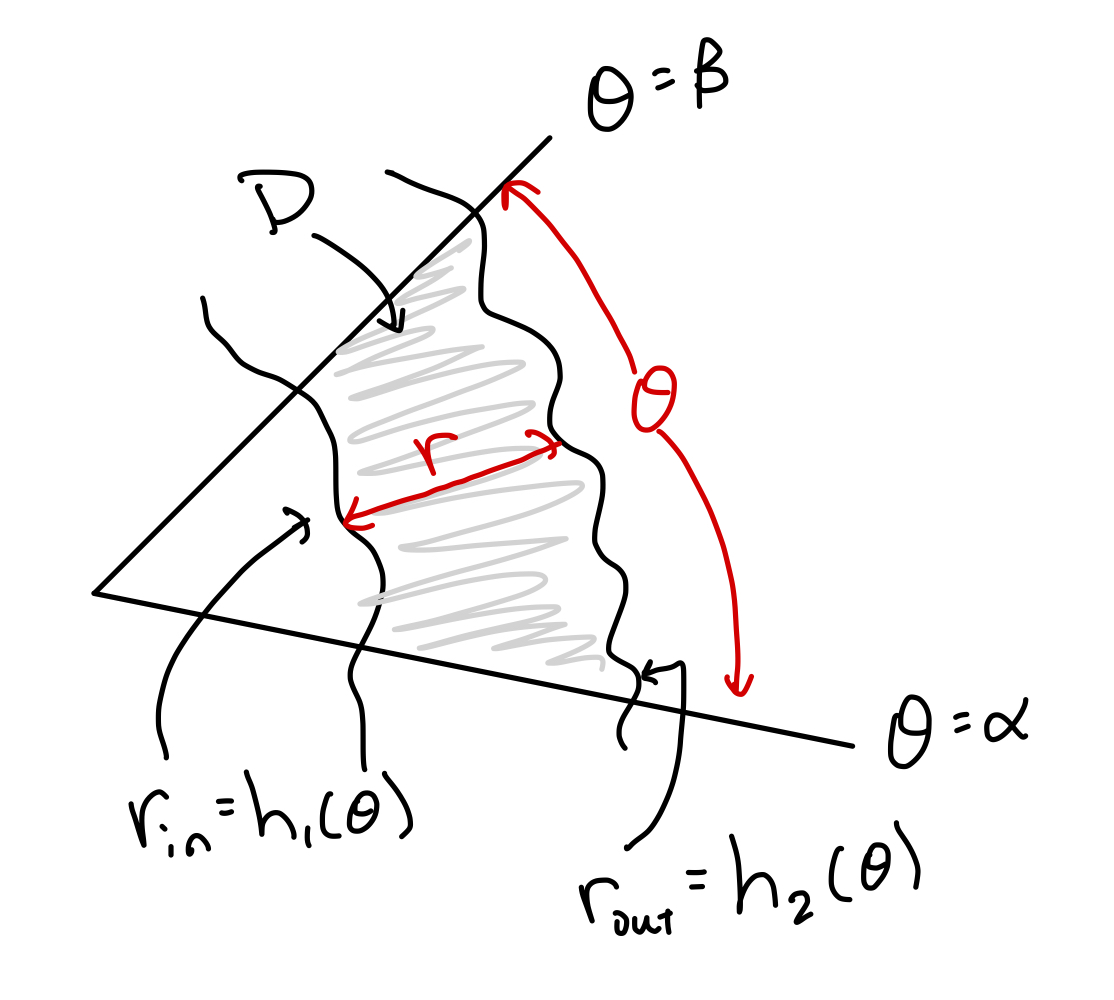 θ = β
D
θ
r
θ = α
r_in = h₁(θ)
r_out = h₂(θ)